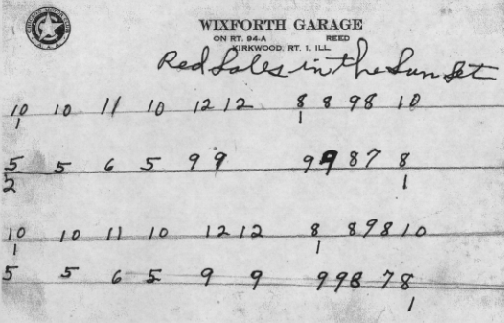 WIXFORTH GARAGE
ON RT. 94-A REED
KIRKWOOD, RT. 1, ILL.
Red Sales in the Sun Set
10 10 11 10 12 12 8 8 9 8 10
1 1
5 5 6 5 9 9 9 9 8 7 8
2 1
10 10 11 10 12 12 8 8 9 8 10
1 1
5 5 6 5 9 9 9 9 8 7 8
1